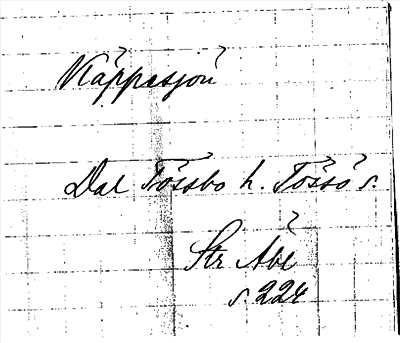 Käppesjön
Dal Tössbo h. Tössö s.
Str Abi
s 224